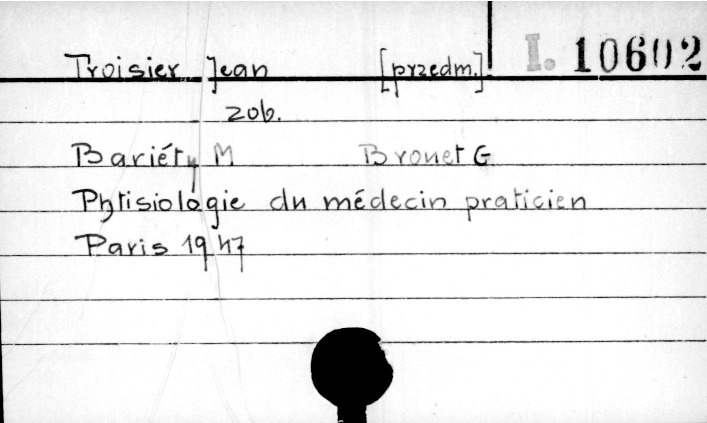 Troisier Jean [przedm.] I. 10602
zob.
Bariéty M Brouet G
Phtisiologie du médecin praticien
Paris 1947